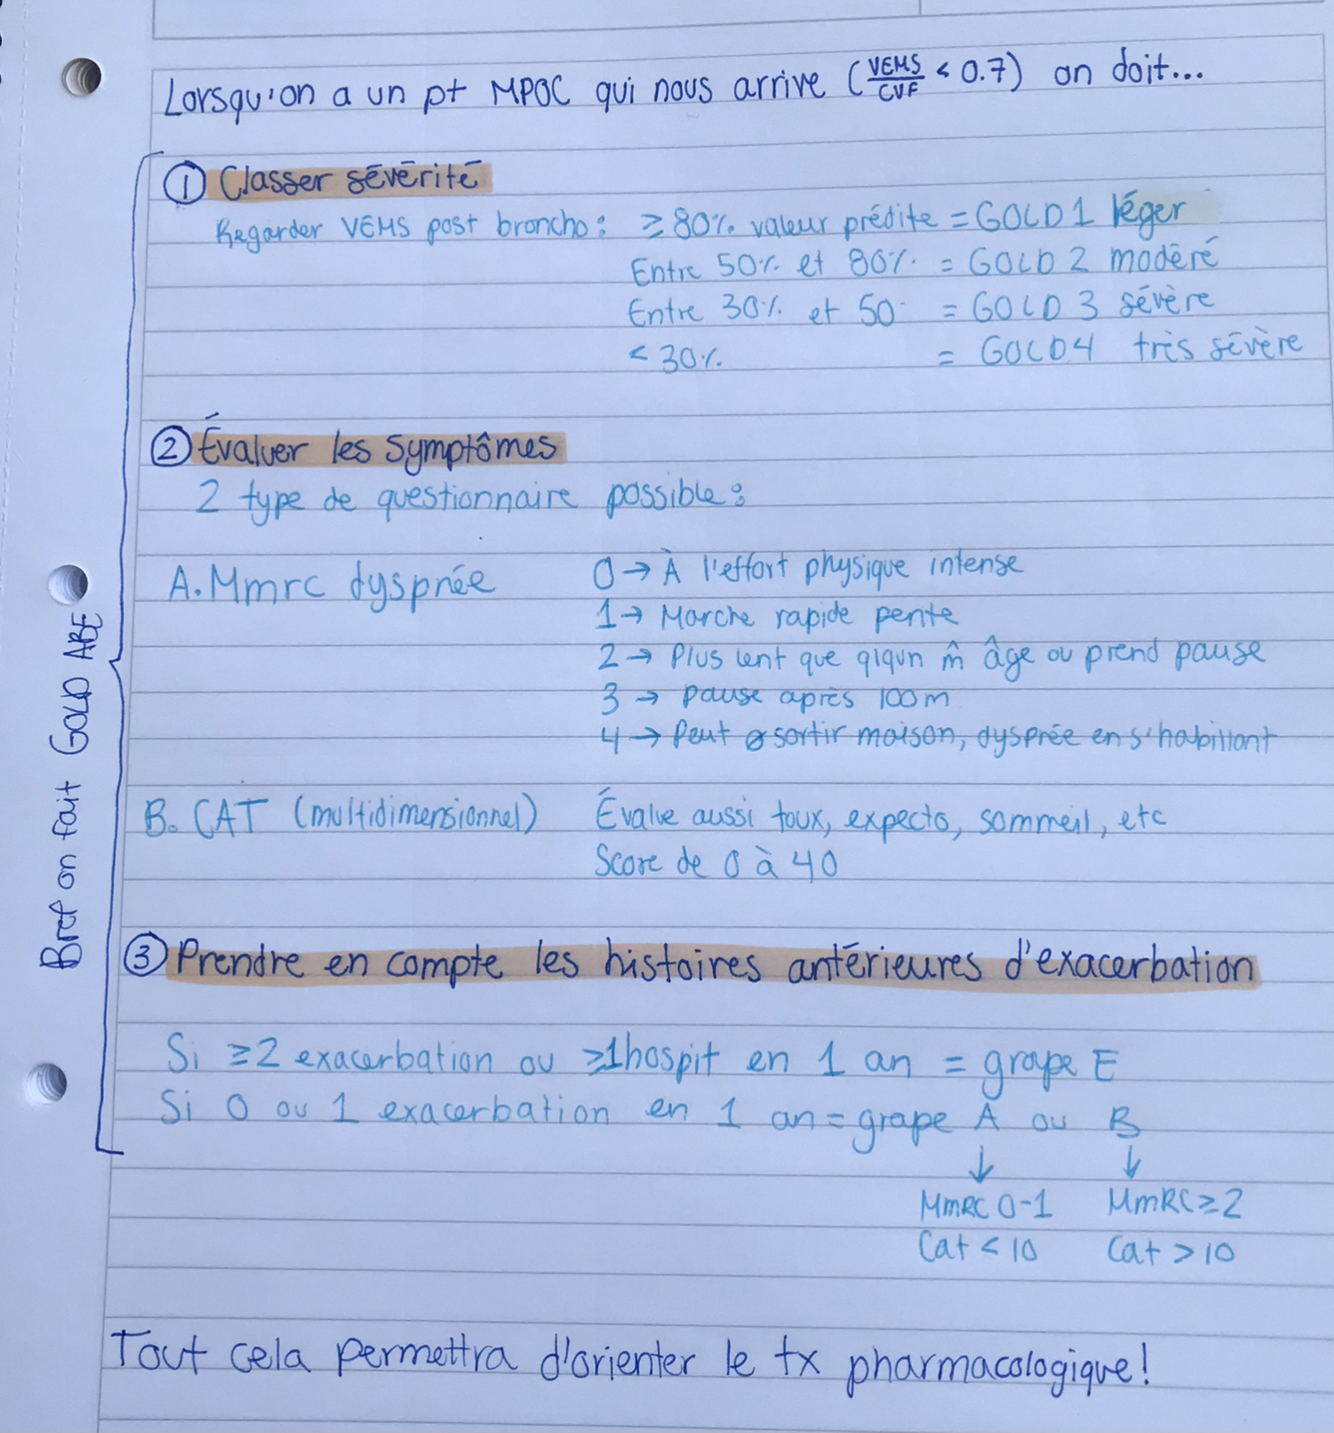 Lorsqu'on a un pt MPOC qui nous arrive (VEMS/CVF < 0.7) on doit...
① Classer sévérité
Regarder VEMS post broncho : ≥80% valeur prédite = GOLD 1 léger
Entre 50% et 80% = GOLD 2 modéré
Entre 30% et 50 = GOLD 3 sévère
< 30% = GOLD 4 très sévère
② Évaluer les symptômes
2 type de questionnaire possible :
A. Mmrc dyspnée 0 → À l'effort physique intense
1 → Marche rapide pente
2 → Plus lent que qlqun m̂ âge ou prend pause
3 → pause après 100m
4 → Peut ∅ sortir maison, dyspnée en s'habillant
B. CAT (multidimensionnel) Évalue aussi toux, expecto, sommeil, etc
Score de 0 à 40
③ Prendre en compte les histoires antérieures d'exacerbation
Si ≥2 exacerbation ou ≥1 hospit en 1 an = grape E
Si 0 ou 1 exacerbation en 1 an = grape A ou B
↓ ↓
MmRC 0-1 MmRC ≥ 2
Cat < 10 Cat > 10
Bref on fait GOLD ABE
Tout cela permettra d'orienter le tx pharmacologique!